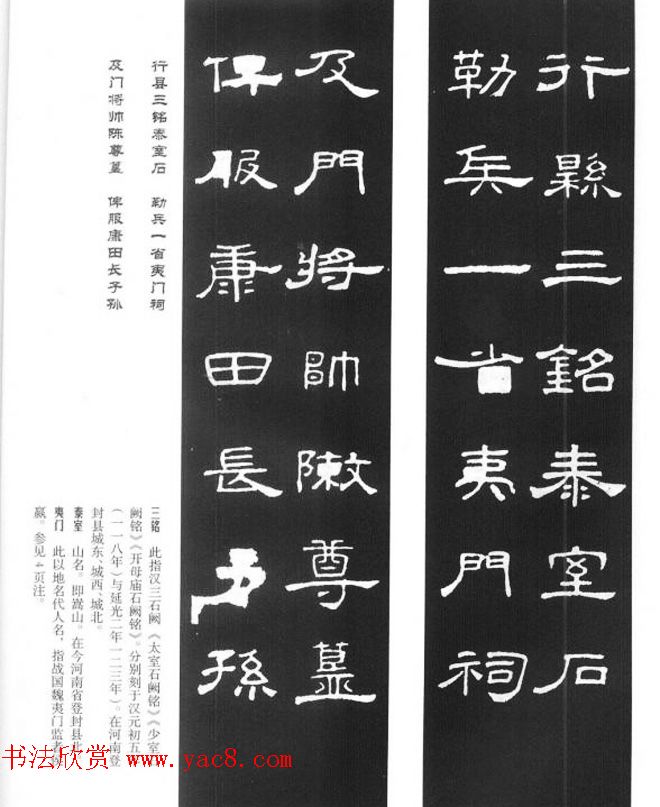 行縣三銘泰室石
勒兵一省夷門祠
及門將帥敶尊墓
俾服康田長子孫
行县三铭泰室石　勒兵一省夷门祠
及门将帅陈尊墓　俾服康田长子孙
三铭　此指汉三石阙《太室石阙铭》《少室
阙铭》《开母庙石阙铭》。分别刻于汉元初五
(一一八年)与延光二年一二三年)。在河南登
封县城东、城西、城北。
泰室　山名。即嵩山。在今河南省登封县北
夷门　此以地名代人名，指战国魏夷门监者
嬴。参见4页注。
书法欣赏 www.yac8.com